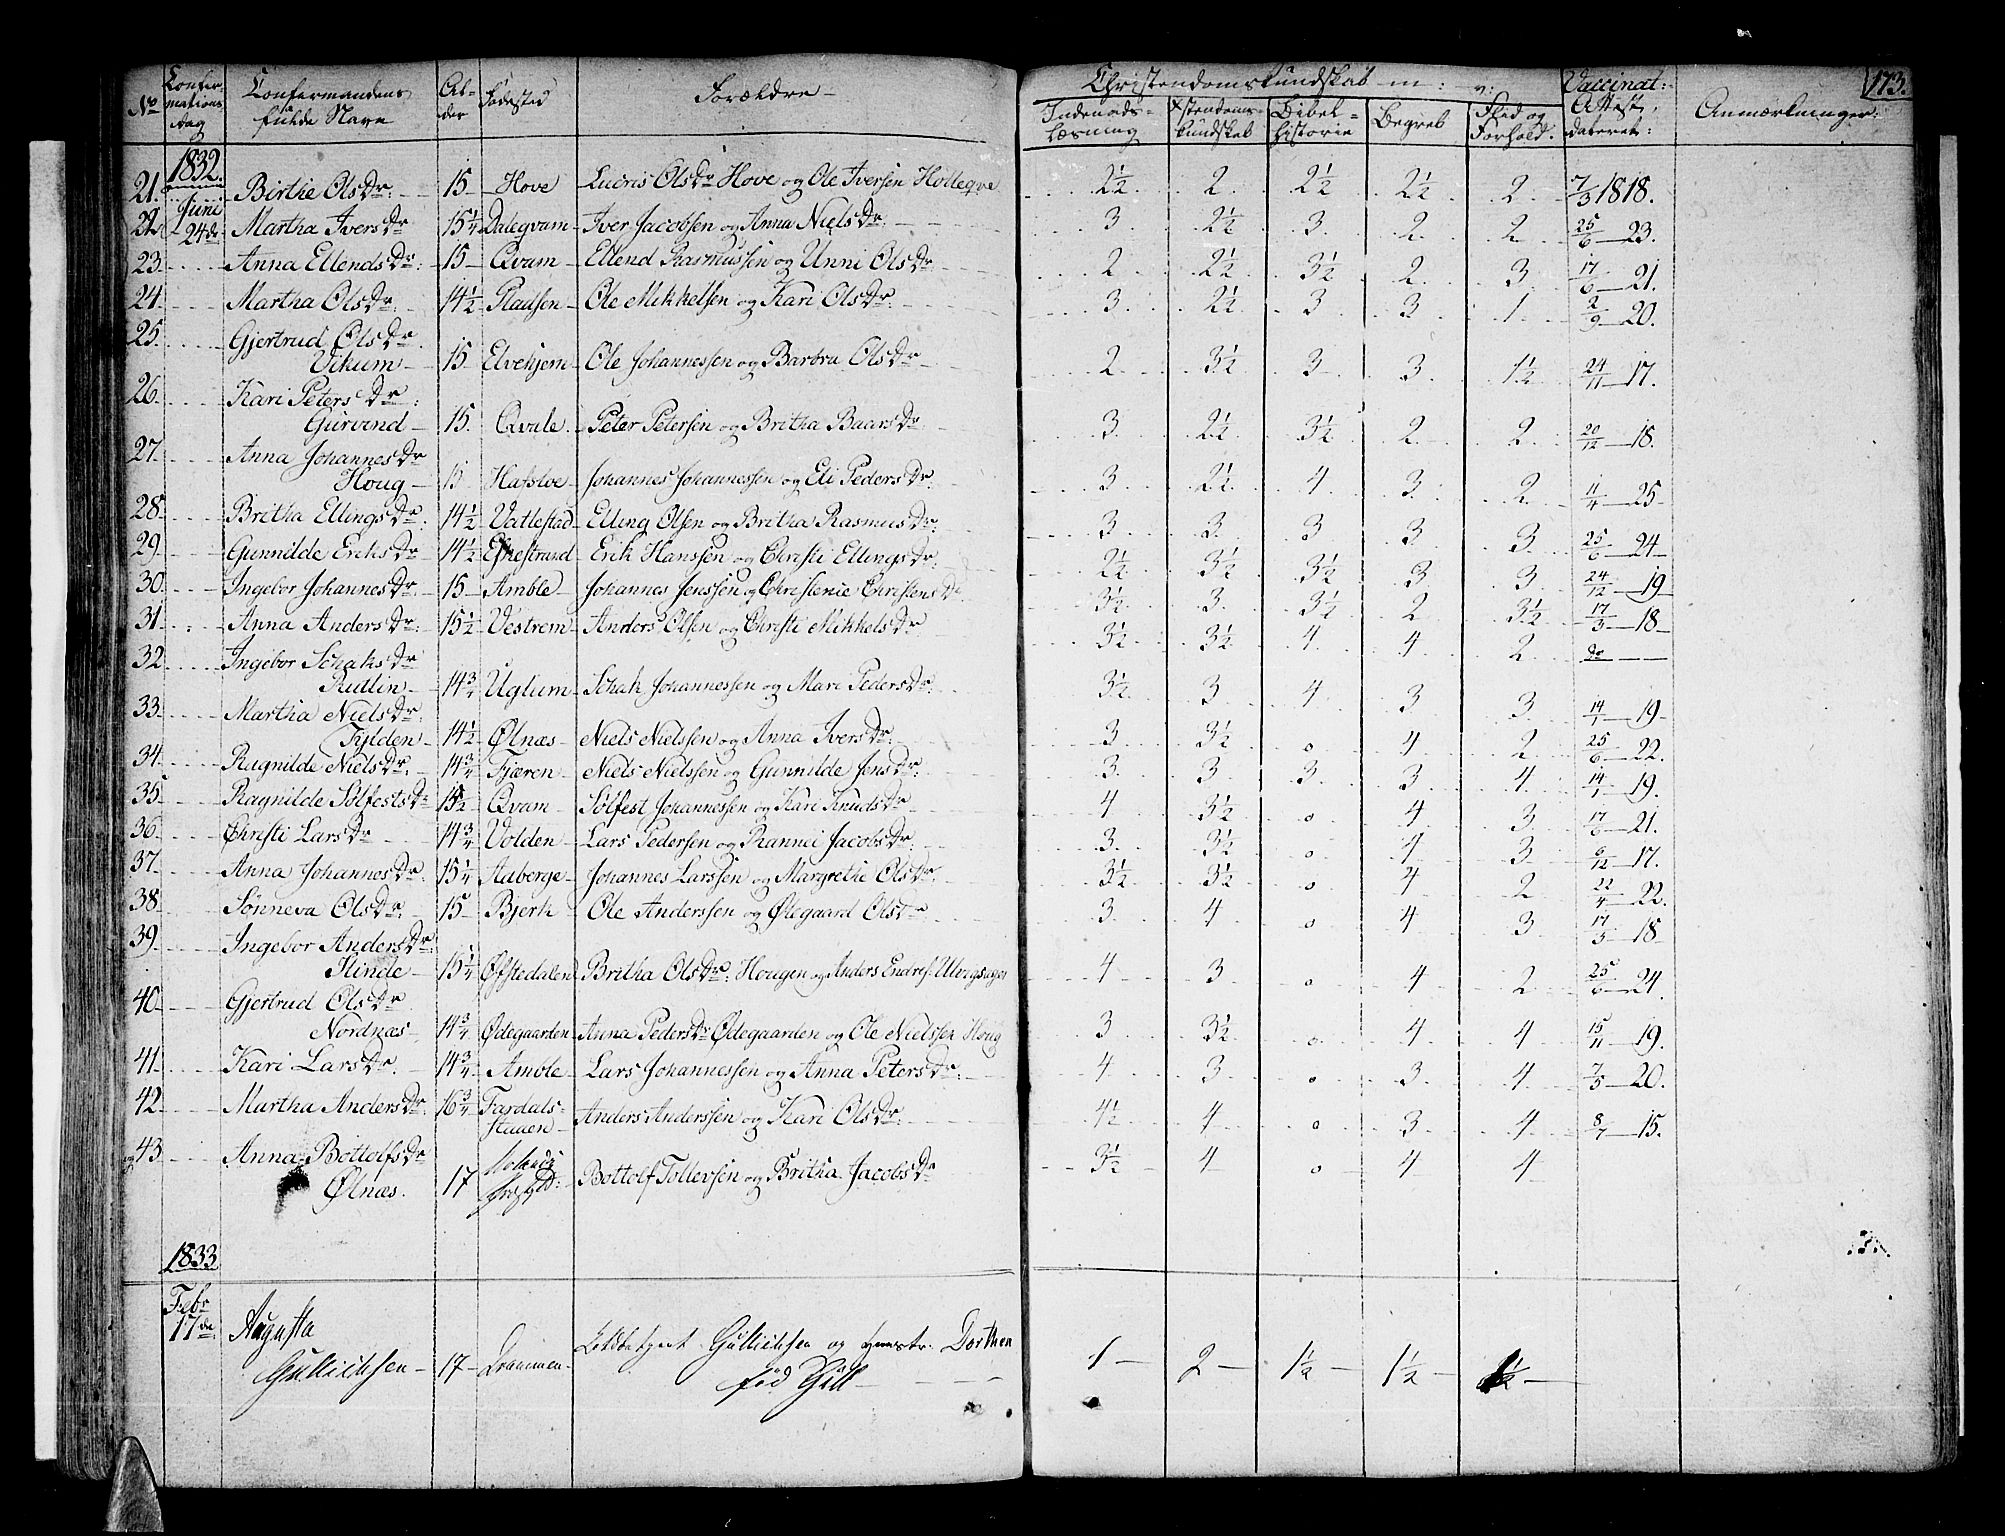 173.
No Confirmations Dag Confirmandens fulde Navn Alder Fødested Forældre Christendomskundskab m: v: Vaccinat: Attest, dateret: Anmærkninger:
Indenads-læsning Xstendoms-kundskab Bibel-historie Begreb Flid og Forhold.
1832.
21. Birthe OlsDr 15 Hove Lucris OlsDr Hove og Ole Iversen 2½ 2 2½ 2½ 2 7/3 1818.
Juni 24de
22 Martha IversDr 15¼ Dalegvam Iver Jacobsen og Anna NielsDr 3 2½ 3 2 2 25/6 23.
23 Anna EllendsDr: 15 Qvam Ellend Rasmussen og Unni OlsDr 2 2½ 3½ 2 3 17/6 21.
24. Martha OlsDr 14½ Ole Mikkelsen og Kari OlsDr 3 2½ 3 3 1 2/9 20.
25. Gjertrud OlsDr
Vikum 15 Elvehjem Ole Johannessen og Barbra OlsDr 2 3½ 3 3 1½ 24/11 17.
26. Kari PetersDr:
Gurvind 15. Qvale Peter Petersen og Britha BaarsDr. 3 2½ 3½ 2 2 20/12 18.
27. Anna JohannesDr
Houg 15 Hafsloe Johannes Johannessen og Eli PedersDr. 3 2½ 4 3 2 11/4 25
28. Britha EllingsDr 14½ Vatlestad Elling Olsen og Britha RasmusDr 3 3 3 3 3 25/6 24
29 Gunnilde EriksDr 14½ Eskestrand Erik Hanssen og Christi EllingsDr 2½ 3½ 3½ 3 3 24/12 19
30. Ingebor JohannesDr 15 Amble Johannes Jenssen og Christenie ChristensDr 3½ 3 3½ 2 3½ 17/3 18
31. Anna AndersDr 15½ Vestrem Anders Olsen og Christi MikkelsDr 3½ 3½ 4 4 2 do
32 Ingebor SchaksDr
Rutlin 14¾ Uglum Schak Johannessen og Mari PedersDr. 3½ 3 4 3 3 14/1 19
33. Martha NielsDr:
Fylden 14½ Ølnæs Niels Nielssen og Anna IversDr: 3 3½ 0 4 2 25/6 22.
34. Ragnilde NielsDr 14¾ Fjæren Niels Nielssen og Gunnilde JensDr: 3 3 3 3 4 14/1 19.
35. Ragnilde SølfestsDr 15½ Qvam Sølfest Johannessen og Kari KnudsDr 4 3½ 0 4 3 17/6 21.
36 Christi LarsDr 14¾ Volden Lars Pedersen og Rannei JacobsDr. 3. 3½ 0 4 3 6/12 17.
37. Anna JohannesDr 15¼ Aaberge Johannes Larssen og Margrethe OlsDr. 3½ 3½ 0 4 2 22/4 22.
38. Sønneva OlsDr. 15 Bjerk Ole Anderssen og Ølegaard OlsDr 3 4 0 4 3 17/3 18
39 Ingebor AndersDr
Slinde 15¼ Øfstedalen Britha OlsDr: Hougen og Anders Endres: 4 3 0 4 2 25/6 24.
40 Gjertrud OlsDr.
Nordnæs 14¾ Ødegaarden Anna PedersDr Ødegaarden og Ole Nielssen Houg 3 3½ 0 4 4 15/11 19.
41. Kari LarsDr. 14¾ Amble Lars Johannessen og Anna PetersDr. 4 3 0 3 4 7/5 20.
42. Martha AndersDr. 16¾ Fardals-
stuen Anders Anderssen og Kari OlsDr: 4½ 4 0 3 4 8/7 15.
og 43. Anna BottolfsDr
Ølnæs. 17 Bottolf Tollevsen og Britha JacobsDr 3½ 4 0 4 4
1833
Febr
17de Augusta
Gullichsen 17 Drammen Gullichsen og Dorthea
fød Gill 1 2 1½ 1½ 1½